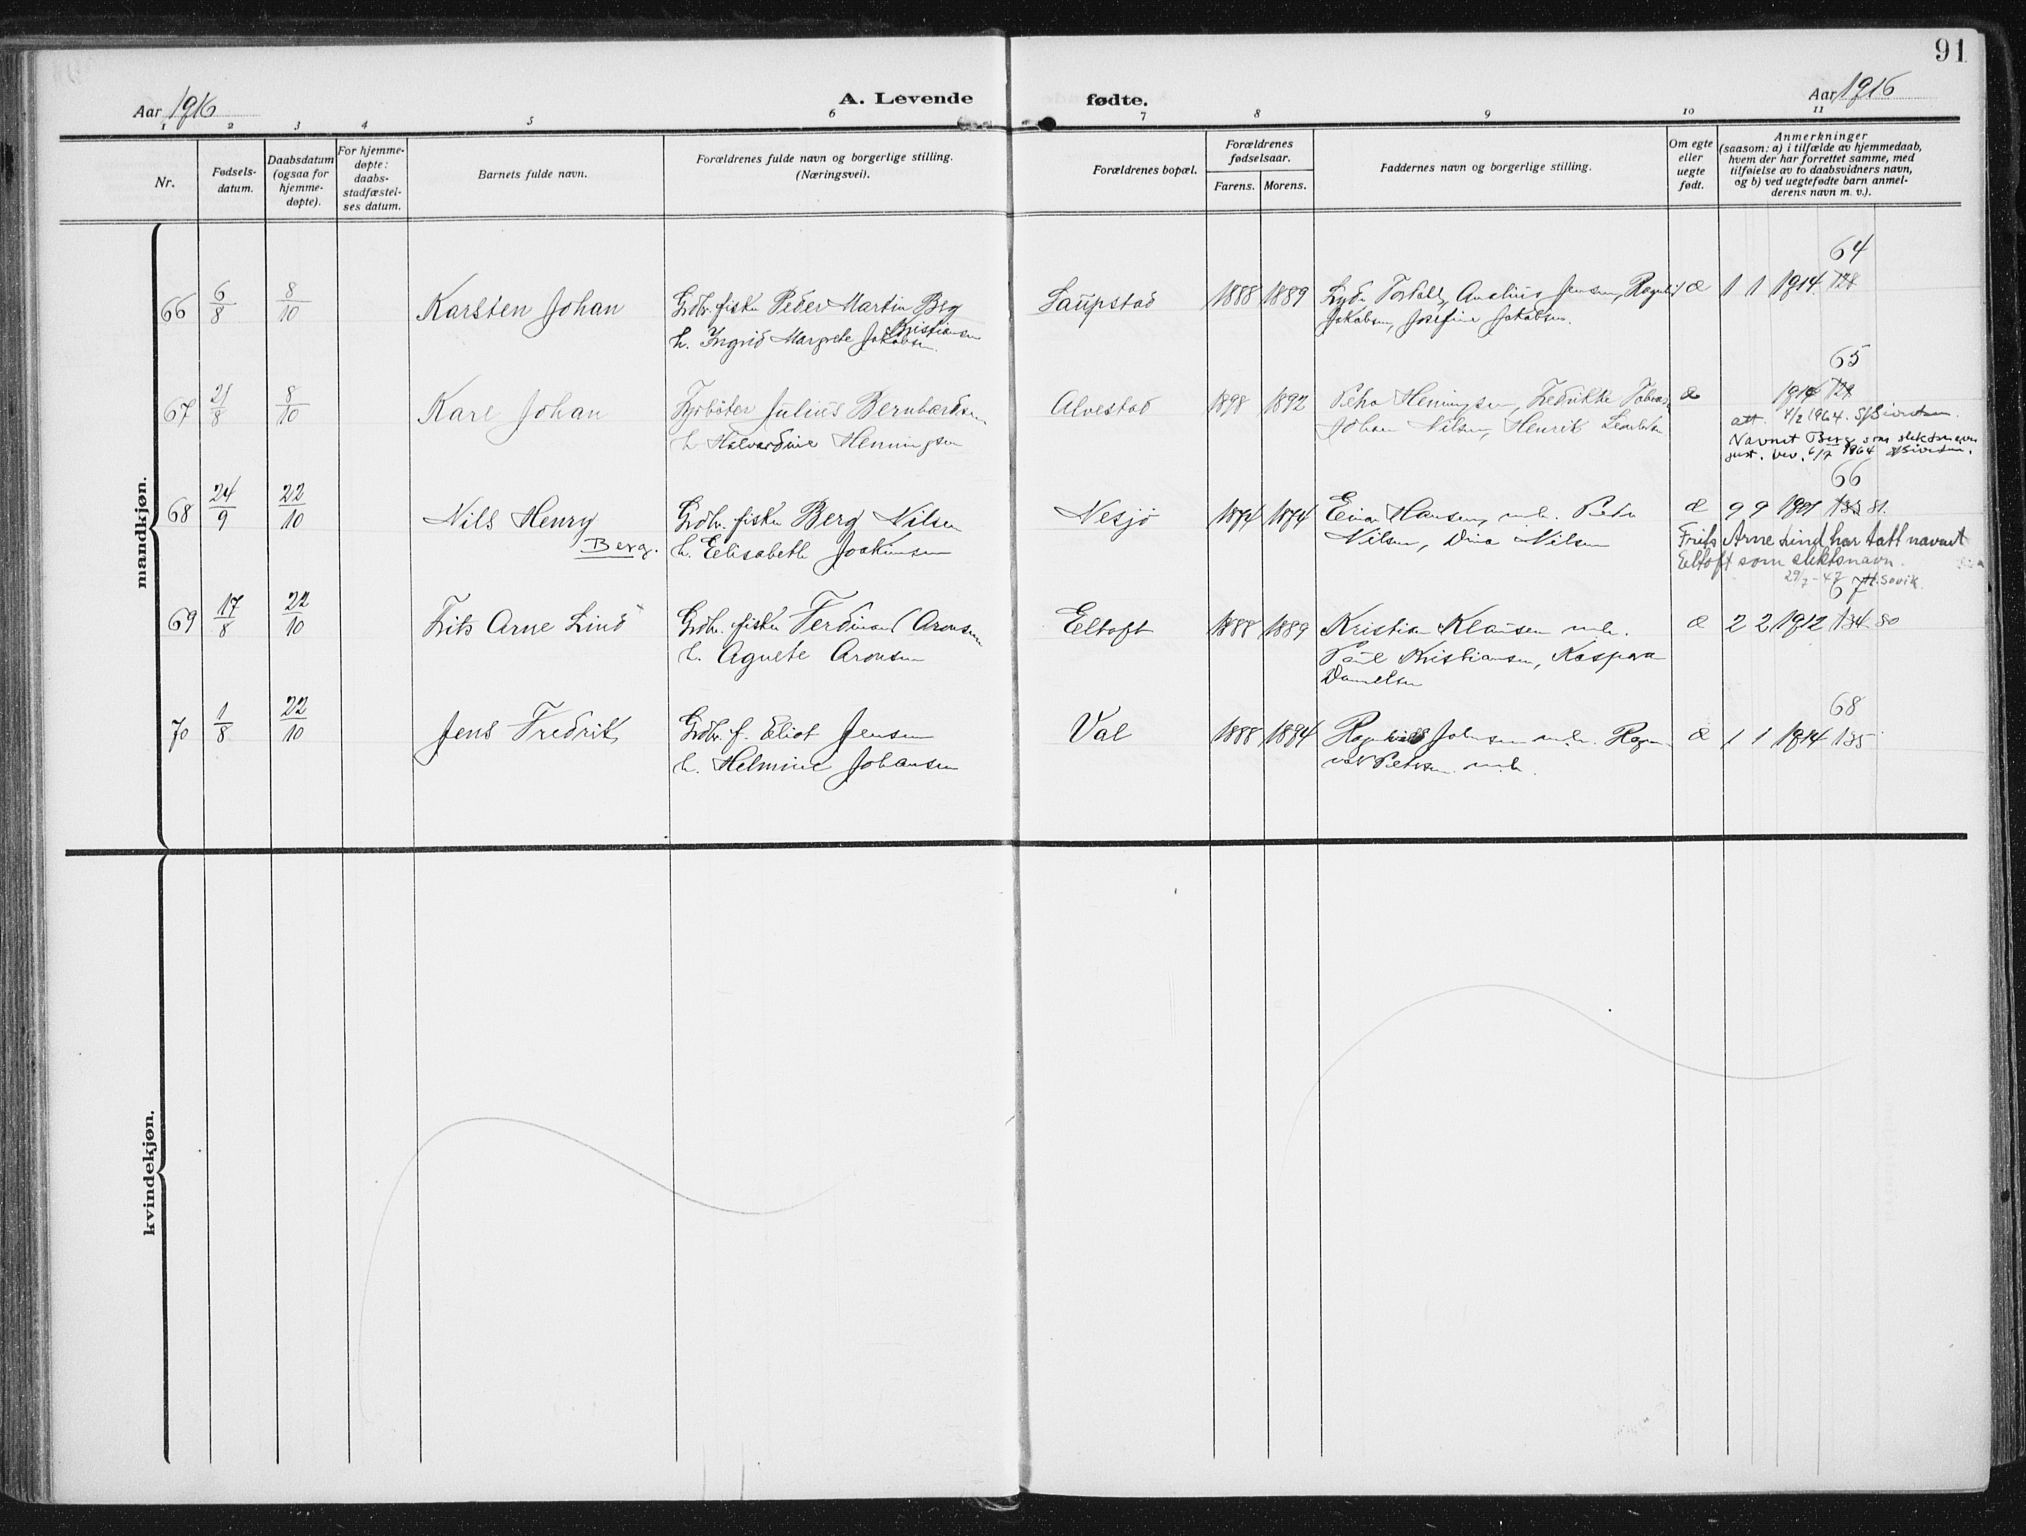 91
Aar 1916
A. Levende fødte.
Aar 1916
1 2 3 4 5 6 7 8 9 10 11
Nr.
Fødsels-
datum.
Daabsdatum
(ogsaa for
hjemme-
døpte).
For hjemme-
døpte:
daabs-
stadfæstel-
ses datum.
Barnets fulde navn.
Forældrenes fulde navn og borgerlige stilling.
(Næringsvei).
Forældrenes bopæl.
Forældrenes
fødselsaar.
Farens. Morens.
Faddernes navn og borgerlige stilling.
Om egte
eller
uegte
født.
Anmerkninger
(saasom: a) i tilfælde av hjemmedaab,
hvem der har forrettet samme, med
tilføielse av to daabsvidners navn,
og b) ved uegtefødte barn anmel-
derens navn m. v.).
mandkjøn.
64
66 6/8 8/10 Karsten Johan Grdbr. fisker Peder Martin Berg Laupstad 1888 1889 Jensen, Ragnhild æ 1 1 1914 128
Kristiansen
h. Ingrid Margrete Jakobsen Jakobsen, Josefine Jakobsen.
65
67 21/8 8/10 Kare Johan Fyrbøter Julius Bernhardsen Alvestad 1898 1892 Petra Henningsen, Fredrikke æ 1914
att. 4/2 1964. S/Sivertsen.
h. Halvardine Henningsen Johan Nilsen, Henrik
Navnet Berg som slektsnavn
just. bev. 6/7 1964
66
68 24/9 22/10 Nils Henry Grdbr. fisker Berg Nilsen Nesjö 1874 1874 Einar Hansen, m.h. Petra æ 9 9 1901 133 81.
Berg. h. Elisabeth Joakimsen Nilsen, Dina Nilsen
Frits Arne Lind har tatt navnet
Eltoft som slektsnavn.
29/7-47 H. Søvik.
67
69 17/8 22/10 Frits Arne Lind Grdbr. fisker Ferdinand Aronsen Eltoft 1888 1889 Kristian Klausen m.h. æ 2 2 1912 134 80
h. Agnete Aronsen Paul Kristiansen, Kaspara
Danielsen
68
70 1/8 22/10 Jens Fredrik Grdbr. f. Eliot Jensen Val 1888 1894 Ragnhild Johnsen m.h. Ragn- æ 1 1 1914 135
h. Helmine Johansen vald Petersen m.h.
kvindekjøn.